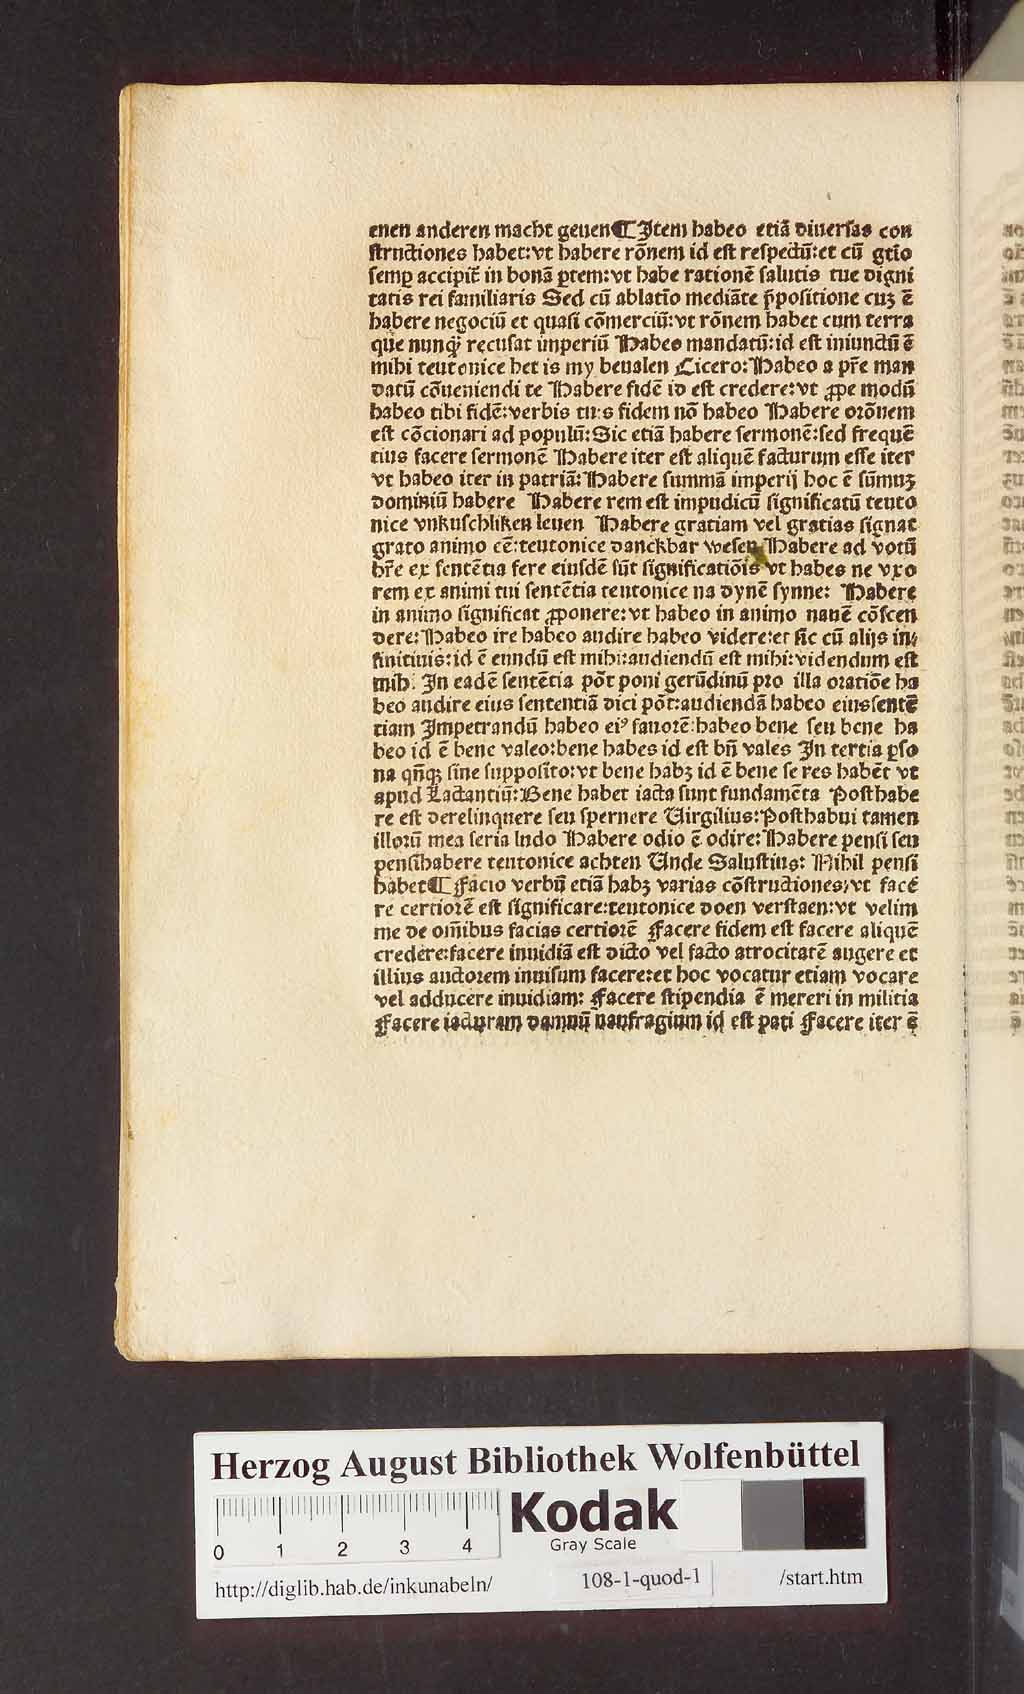 enen anderen macht geuen¶ Item habeo etiā diuersas con
structiones habet:vt habere rōnem id est respectū:et cū gtīo
semꝑ accipit̄ in bonā ꝑtem:vt habe rationē salutis tue digni
tatis rei familiaris Sed cū ablatīo mediāte p̄positione cuꝫ ē
habere negociū et quasi cōmerciū:vt rōnem habet cum terra
que nunq̄ recusat imperiū Habeo mandatū:id est iniunctū ē
mihi teutonice het is my beualen Cicero:Habeo a pr̄e man
datū cōueniendi te Habere fidē id est credere:vt ꝓpe modū
habeo tibi fidē:verbis tuis fidem nō habeo Habere orōnem
est cōcionari ad populū:Sic etiā habere sermonē:sed frequē
tius facere sermonē Habere iter est aliquē facturum esse iter
vt habeo iter in patriā:Habere summā imperij hoc ē sūmuꝫ
dominiū habere Habere rem est impudicū significatū teuto
nice vnkuschliken leuen Habere gratiam vel gratias signat
grato animo eē:teutonice danckbar wesen Habere ad votū
hr̄e ex sentētia fere eiusdē sūt significatiōis vt habes ne vxo
rem ex animi tui sentētia teutonice na dynē synne: Habere
in animo significat ꝓponere:vt habeo in animo nauē cōscen
dere:Habeo ire habeo audire habeo videre:et sic cū alijs in/
finitiuis:id ē eundū est mihi:audiendū est mihi:videndum est
mihi: In eadē sentētia pōt poni gerūdinū pro illa oratiōe ha
beo audire eius sententiā dici pōt:audiendā habeo eius sentē
tiam Impetrandū habeo eiꝰ fauorē:habeo bene seu bene ha
beo id ē bene valeo:bene habes id est bn̄ vales In tertia ꝑso
na qn̄qꝫ sine supposito:vt bene habꝫ id ē bene se res habēt vt
apud Lactantiū:Bene habet iacta sunt fundamēta Posthabe
re est derelinquere seu spernere Uirgilius:Posthabui tamen
illorū mea seria ludo Habere odio ē odire:Habere pensi seu
pensihabere teutonice achten Unde Salustius: Nihil pensi
habet¶ Facio verbū etiā habꝫ varias cōstructiones:vt face
re certiorē est significare:teutonice doen verstaen:vt velim
me de om̄ibus facias certiorē Facere fidem est facere aliquē
credere:facere inuidiā est dicto vel facto atrocitatē augere et
illius auctorem inuisum facere:et hoc vocatur etiam vocare
vel adducere inuidiam: Facere stipendia ē mereri in militia
Facere iacturam damnū naufragium id est pati Facere iter ē
Herzog August Bibliothek Wolfenbüttel
Kodak
Gray Scale
0 1 2 3 4
http://diglib.hab.de/inkunabeln/ 108-1-quod-1 /start.htm